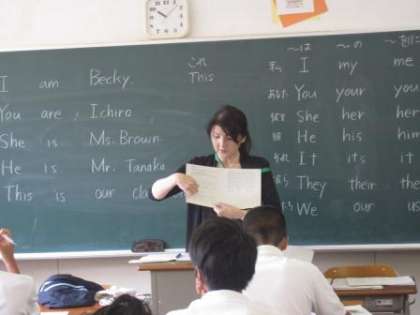 I am Becky
You are , Ichiro
She is Ms. Brown
He is Mr. Tanaka
This is our
これ
This
〜は 〜の
I my me
You your you
She her her
He his him
It its it
They their
We our us